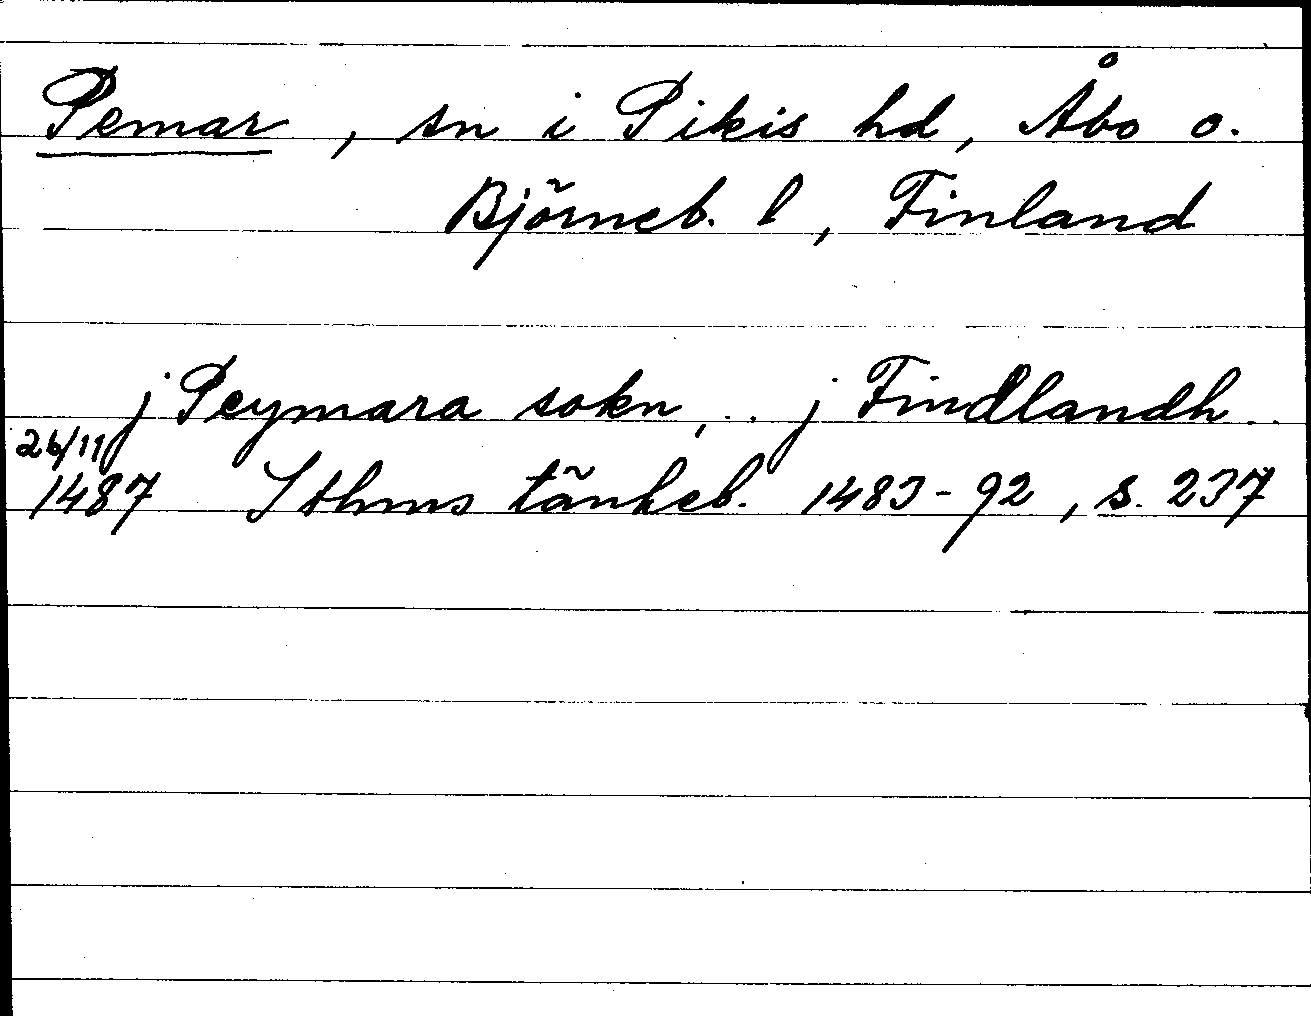 Pemar, sn i Pikis hd, Åbo o.
Björneb. l, Finland
j Peymara sokn, .. j Findlandh ..
26/11
1487 Sthms tänkeb. 1483-92, s. 237